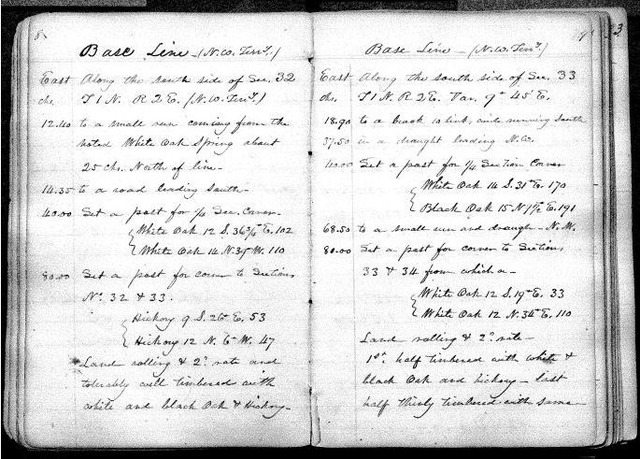 8
Base Line - (N.W. Terry.)
East Along the south side of Sec. 32
chs. T 1 N. R 2 E. (N.W. Terry.)
12.40 to a small run coming from the
noted White Oak Spring about
25 chs. North of line -
14.35 to a road leading South -
40.00 Set a post for 1/4 Sec. Corner
White Oak 12 S. 36 1/2° E. 102
White Oak 14 N. 39° W. 110
80.00 Set a post for corner to Sections
No. 32 & 33.
Hickory 9 S. 26° E. 53
Hickory 12 N. 6° W. 47
Land rolling & 2d. rate and
tolerably well timbered with
white and black Oak & Hickory -
9
Base Line - (N.W. Terry.)
East Along the south side of Sec. 33
chs. T 1 N. R 2 E. Var. 9° 45' E.
18.90 to a brook 10 links wide running South
37.50 in a draught leading N.W.
40.00 Set a post for 1/4 Section Corner
White Oak 14 S. 31° E. 170
Black Oak 15 N. 1 1/2° E. 191
68.50 to a small run and draught - N.W.
80.00 Set a post for corner to Sections
33 & 34 from which a -
White Oak 12 S. 19° E. 33
White Oak 12 N. 34° E. 110
Land rolling & 2d. rate -
1st. half timbered with white &
black Oak and hickory - last
half thinly timbered with same -
3